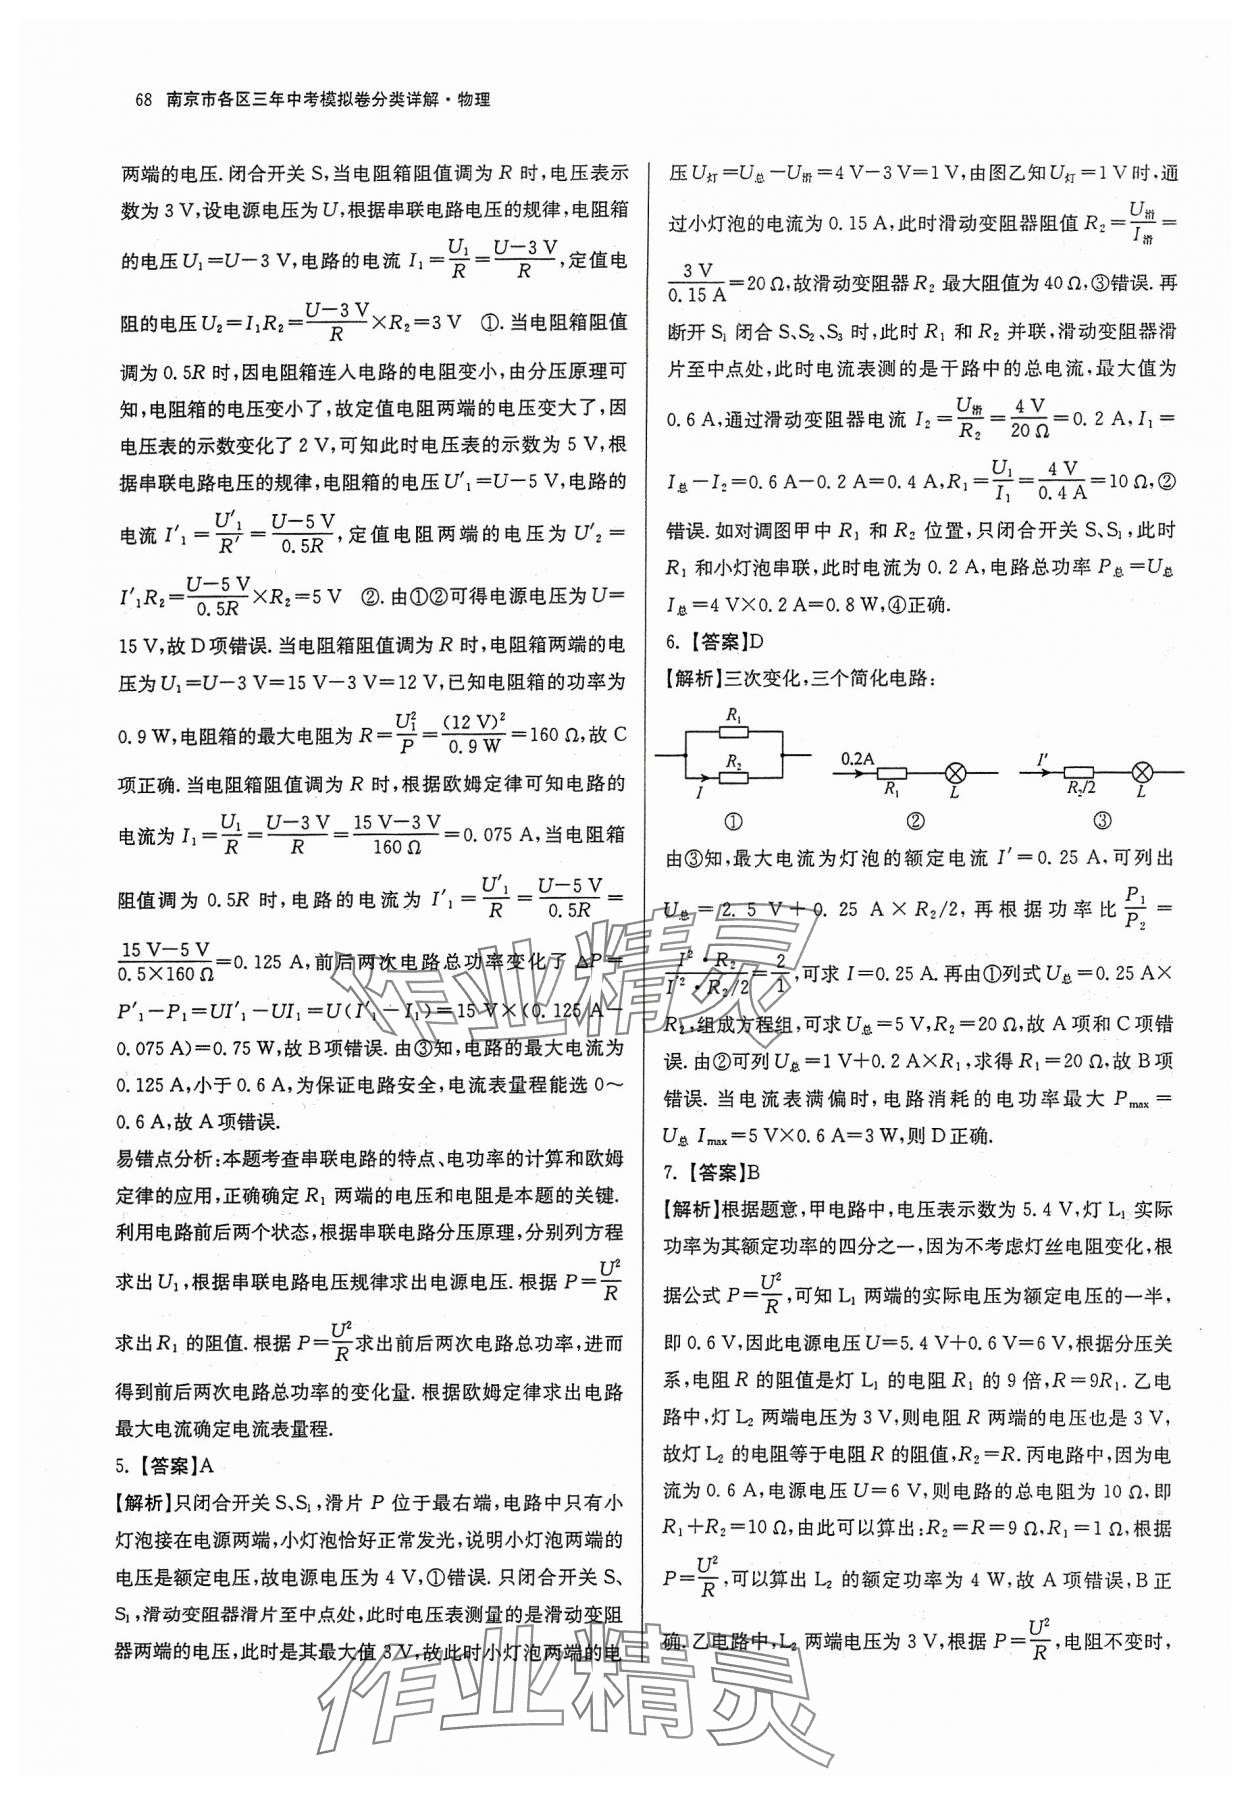 68 南京市各区三年中考模拟卷分类详解·物理
两端的电压. 闭合开关 S,当电阻箱阻值调为 R 时,电压表示
数为 3 V,设电源电压为 U,根据串联电路电压的规律,电阻箱
的电压 U₁=U−3 V,电路的电流 I₁=U₁/R=(U−3 V)/R,定值电
阻的电压 U₂=I₁R₂=(U−3 V)/R×R₂=3 V ①. 当电阻箱阻值
调为 0.5R 时,因电阻箱连入电路的电阻变小,由分压原理可
知,电阻箱的电压变小了,故定值电阻两端的电压变大了,因
电压表的示数变化了 2 V,可知此时电压表的示数为 5 V,根
据串联电路电压的规律,电阻箱的电压 U′₁=U−5 V,电路的
电流 I′₁=U′₁/R′=(U−5 V)/0.5R,定值电阻两端的电压为 U′₂=
I′₁R₂=(U−5 V)/0.5R×R₂=5 V ②. 由①②可得电源电压为 U=
15 V,故 D 项错误. 当电阻箱阻值调为 R 时,电阻箱两端的电
压为 U₁=U−3 V=15 V−3 V=12 V,已知电阻箱的功率为
0.9 W,电阻箱的最大电阻为 R=U₁²/P=(12 V)²/0.9 W=160 Ω,故 C
项正确. 当电阻箱阻值调为 R 时,根据欧姆定律可知电路的
电流为 I₁=U₁/R=(U−3 V)/R=(15 V−3 V)/160 Ω=0.075 A,当电阻箱
阻值调为 0.5R 时,电路的电流为 I′₁=U′₁/R=(U−5 V)/0.5R=
(15 V−5 V)/(0.5×160 Ω)=0.125 A,前后两次电路总功率变化了 ΔP=
P′₁−P₁=UI′₁−UI₁=U(I′₁−I₁)=15 V×(0.125 A−
0.075 A)=0.75 W,故 B 项错误. 由③知,电路的最大电流为
0.125 A,小于 0.6 A,为保证电路安全,电流表量程能选 0~
0.6 A,故 A 项错误.
易错点分析:本题考查串联电路的特点、电功率的计算和欧姆
定律的应用,正确确定 R₁ 两端的电压和电阻是本题的关键.
利用电路前后两个状态,根据串联电路分压原理,分别列方程
求出 U₁,根据串联电路电压规律求出电源电压. 根据 P=U²/R
求出 R₁ 的阻值. 根据 P=U²/R求出前后两次电路总功率,进而
得到前后两次电路总功率的变化量. 根据欧姆定律求出电路
最大电流确定电流表量程.
5. 【答案】A
【解析】只闭合开关 S、S₁,滑片 P 位于最右端,电路中只有小
灯泡接在电源两端,小灯泡恰好正常发光,说明小灯泡两端的
电压是额定电压,故电源电压为 4 V,①错误. 只闭合开关 S、
S₁,滑动变阻器滑片至中点处,此时电压表测量的是滑动变阻
器两端的电压,此时是其最大值 3 V,故此时小灯泡两端的电
压 U灯=U总−U滑=4 V−3 V=1 V,由图乙知 U灯=1 V 时,通
过小灯泡的电流为 0.15 A,此时滑动变阻器阻值 R₂=U滑/I滑=
3 V/0.15 A=20 Ω,故滑动变阻器 R₂ 最大阻值为 40 Ω,③错误. 再
断开 S₁ 闭合 S、S₂、S₃ 时,此时 R₁ 和 R₂ 并联,滑动变阻器滑
片至中点处,此时电流表测的是干路中的总电流,最大值为
0.6 A,通过滑动变阻器电流 I₂=U滑/R₂=4 V/20 Ω=0.2 A,I₁=
I总−I₂=0.6 A−0.2 A=0.4 A,R₁=U₁/I₁=4 V/0.4 A=10 Ω,②
错误. 如对调图甲中 R₁ 和 R₂ 位置,只闭合开关 S、S₁,此时
R₁ 和小灯泡串联,此时电流为 0.2 A,电路总功率 P总=U总
I总=4 V×0.2 A=0.8 W,④正确.
6. 【答案】D
【解析】三次变化,三个简化电路:
R₁ R₂ I ①
0.2A R₁ L ②
I′ R₂/2 L ③
由③知,最大电流为灯泡的额定电流 I′=0.25 A,可列出
U总=2.5 V+0.25 A×R₂/2,再根据功率比P₁/P₂=
(I²·R₂)/(I′²·R₂/2)=2/1,可求 I=0.25 A. 再由①列式 U总=0.25 A×
R₂,组成方程组,可求 U总=5 V,R₂=20 Ω,故 A 项和 C 项错
误. 由②可列 U总=1 V+0.2 A×R₁,求得 R₁=20 Ω,故 B 项
错误. 当电流表满偏时,电路消耗的电功率最大 Pmax=
U总 Imax=5 V×0.6 A=3 W,则 D 正确.
7. 【答案】B
【解析】根据题意,甲电路中,电压表示数为 5.4 V,灯 L₁ 实际
功率为其额定功率的四分之一,因为不考虑灯丝电阻变化,根
据公式 P=U²/R,可知 L₁ 两端的实际电压为额定电压的一半,
即 0.6 V,因此电源电压 U=5.4 V+0.6 V=6 V,根据分压关
系,电阻 R 的阻值是灯 L₁ 的电阻 R₁ 的 9 倍,R=9R₁. 乙电
路中,灯 L₂ 两端电压为 3 V,则电阻 R 两端的电压也是 3 V,
故灯 L₂ 的电阻等于电阻 R 的阻值,R₂=R. 丙电路中,因为电
流为 0.6 A,电源电压 U=6 V,则电路的总电阻为 10 Ω,即
R₁+R₂=10 Ω,由此可以算出:R₂=R=9 Ω,R₁=1 Ω,根据
P=U²/R,可以算出 L₂ 的额定功率为 4 W,故 A 项错误,B 正
确. 乙电路中,L₂ 两端电压为 3 V,根据 P=U²/R,电阻不变时,
作业精灵
作业精灵